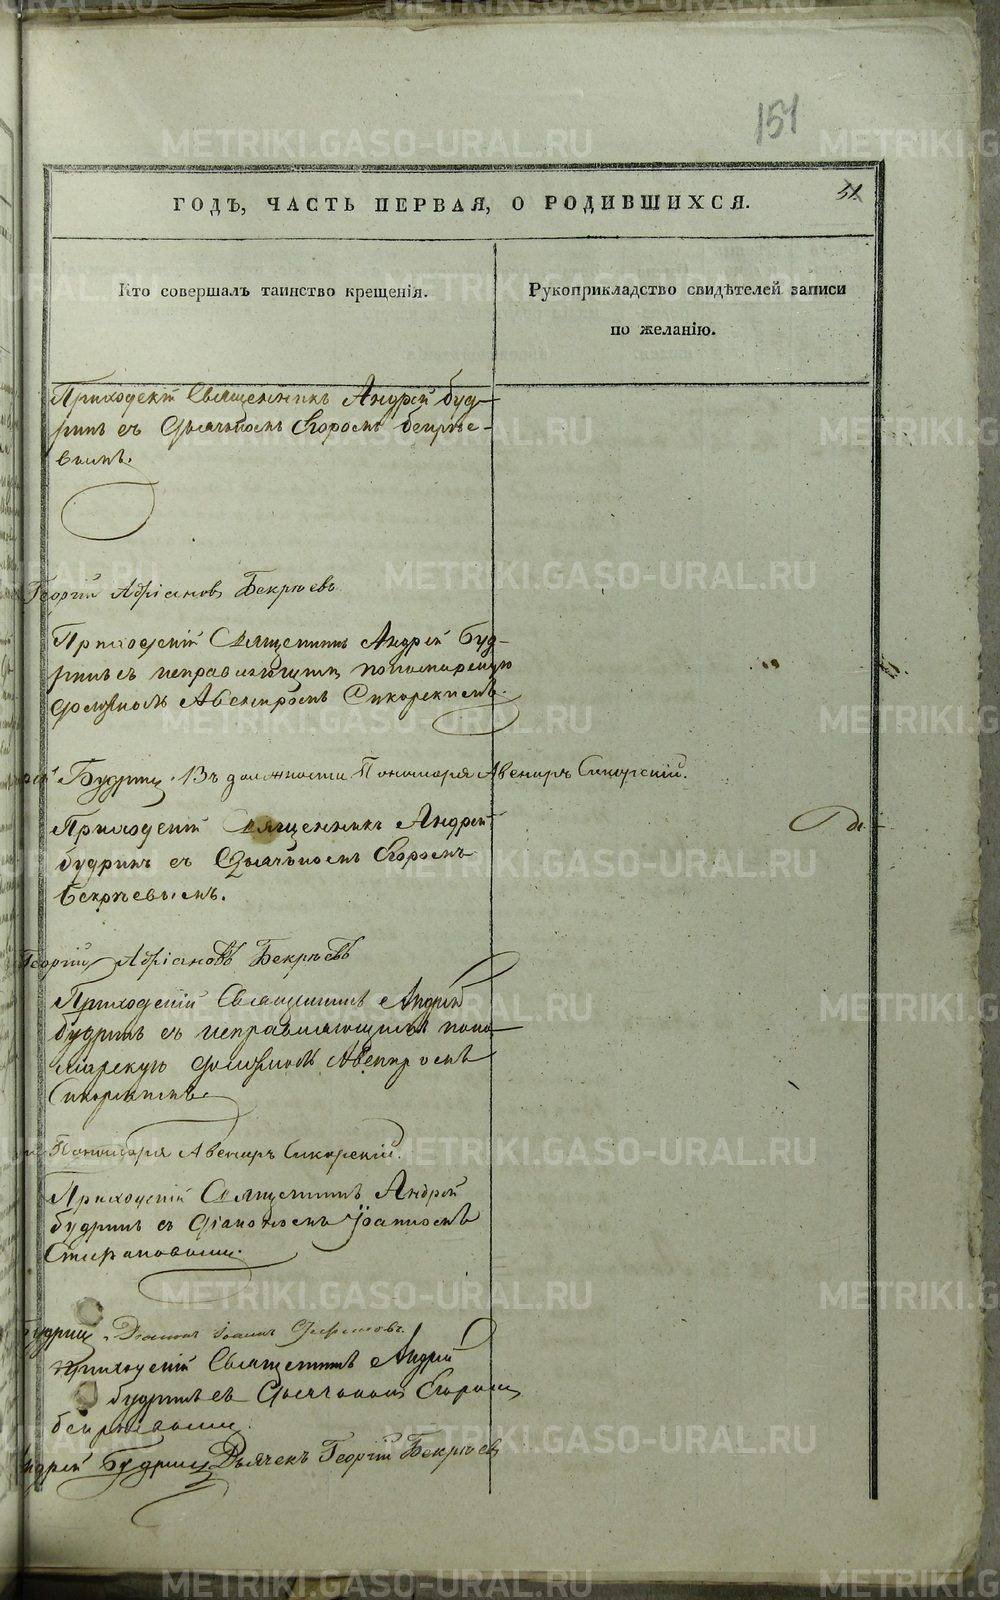 151
51
ГОДЪ, ЧАСТЬ ПЕРВАЯ, О РОДИВШИХСЯ.
Кто совершалъ таинство крещенія.
Рукоприкладство свидѣтелей записи
по желанію.
Приходскій Священникъ Андрей Буд-
ринъ съ Дьячькомъ Егоромъ Бекрѣе-
вымъ.
Георгій Адріановъ Бекрѣевъ
Приходскій Священникъ Андрей Буд-
ринъ съ исправляющимъ пономарскую
должность Авениромъ Сикорскимъ.
Будринъ. Въ должности Пономаря Авениръ Сикорскій.
Приходскій Священникъ Андрей
Будринъ съ Дьячькомъ Егоромъ
Бекрѣевымъ.
Георгій Адріановъ Бекрѣевъ
Приходскій Священникъ Андрей
Будринъ съ исправляющимъ поно-
марскую должность Авениромъ
Сикорскимъ.
Пономаря Авениръ Сикорскій.
Приходскій Священникъ Андрей
Будринъ съ Діакономъ Іоанномъ
Стефановымъ.
Будринъ. Діаконъ Іоаннъ
Приходскій Священникъ Андрей
Будринъ съ Дьячкомъ Егоромъ
Бекрѣевымъ.
Андрей Будринъ Дьячекъ Георгій Бекрѣевъ
METRIKI.GASO-URAL.RU